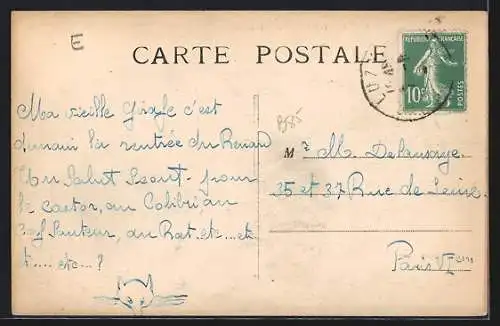 E
CARTE POSTALE
RÉPUBLIQUE FRANÇAISE
10c
POSTES
Ma vieille Girafe c'est
demain la rentrée du Renard
Un Salut Scout pour
le castor, au Colibri, au
Sauteur, au Rat etc... et
t.... etc...?
B85
M r M. Delausaye
35 et 37 Rue de Seine
Paris VI em